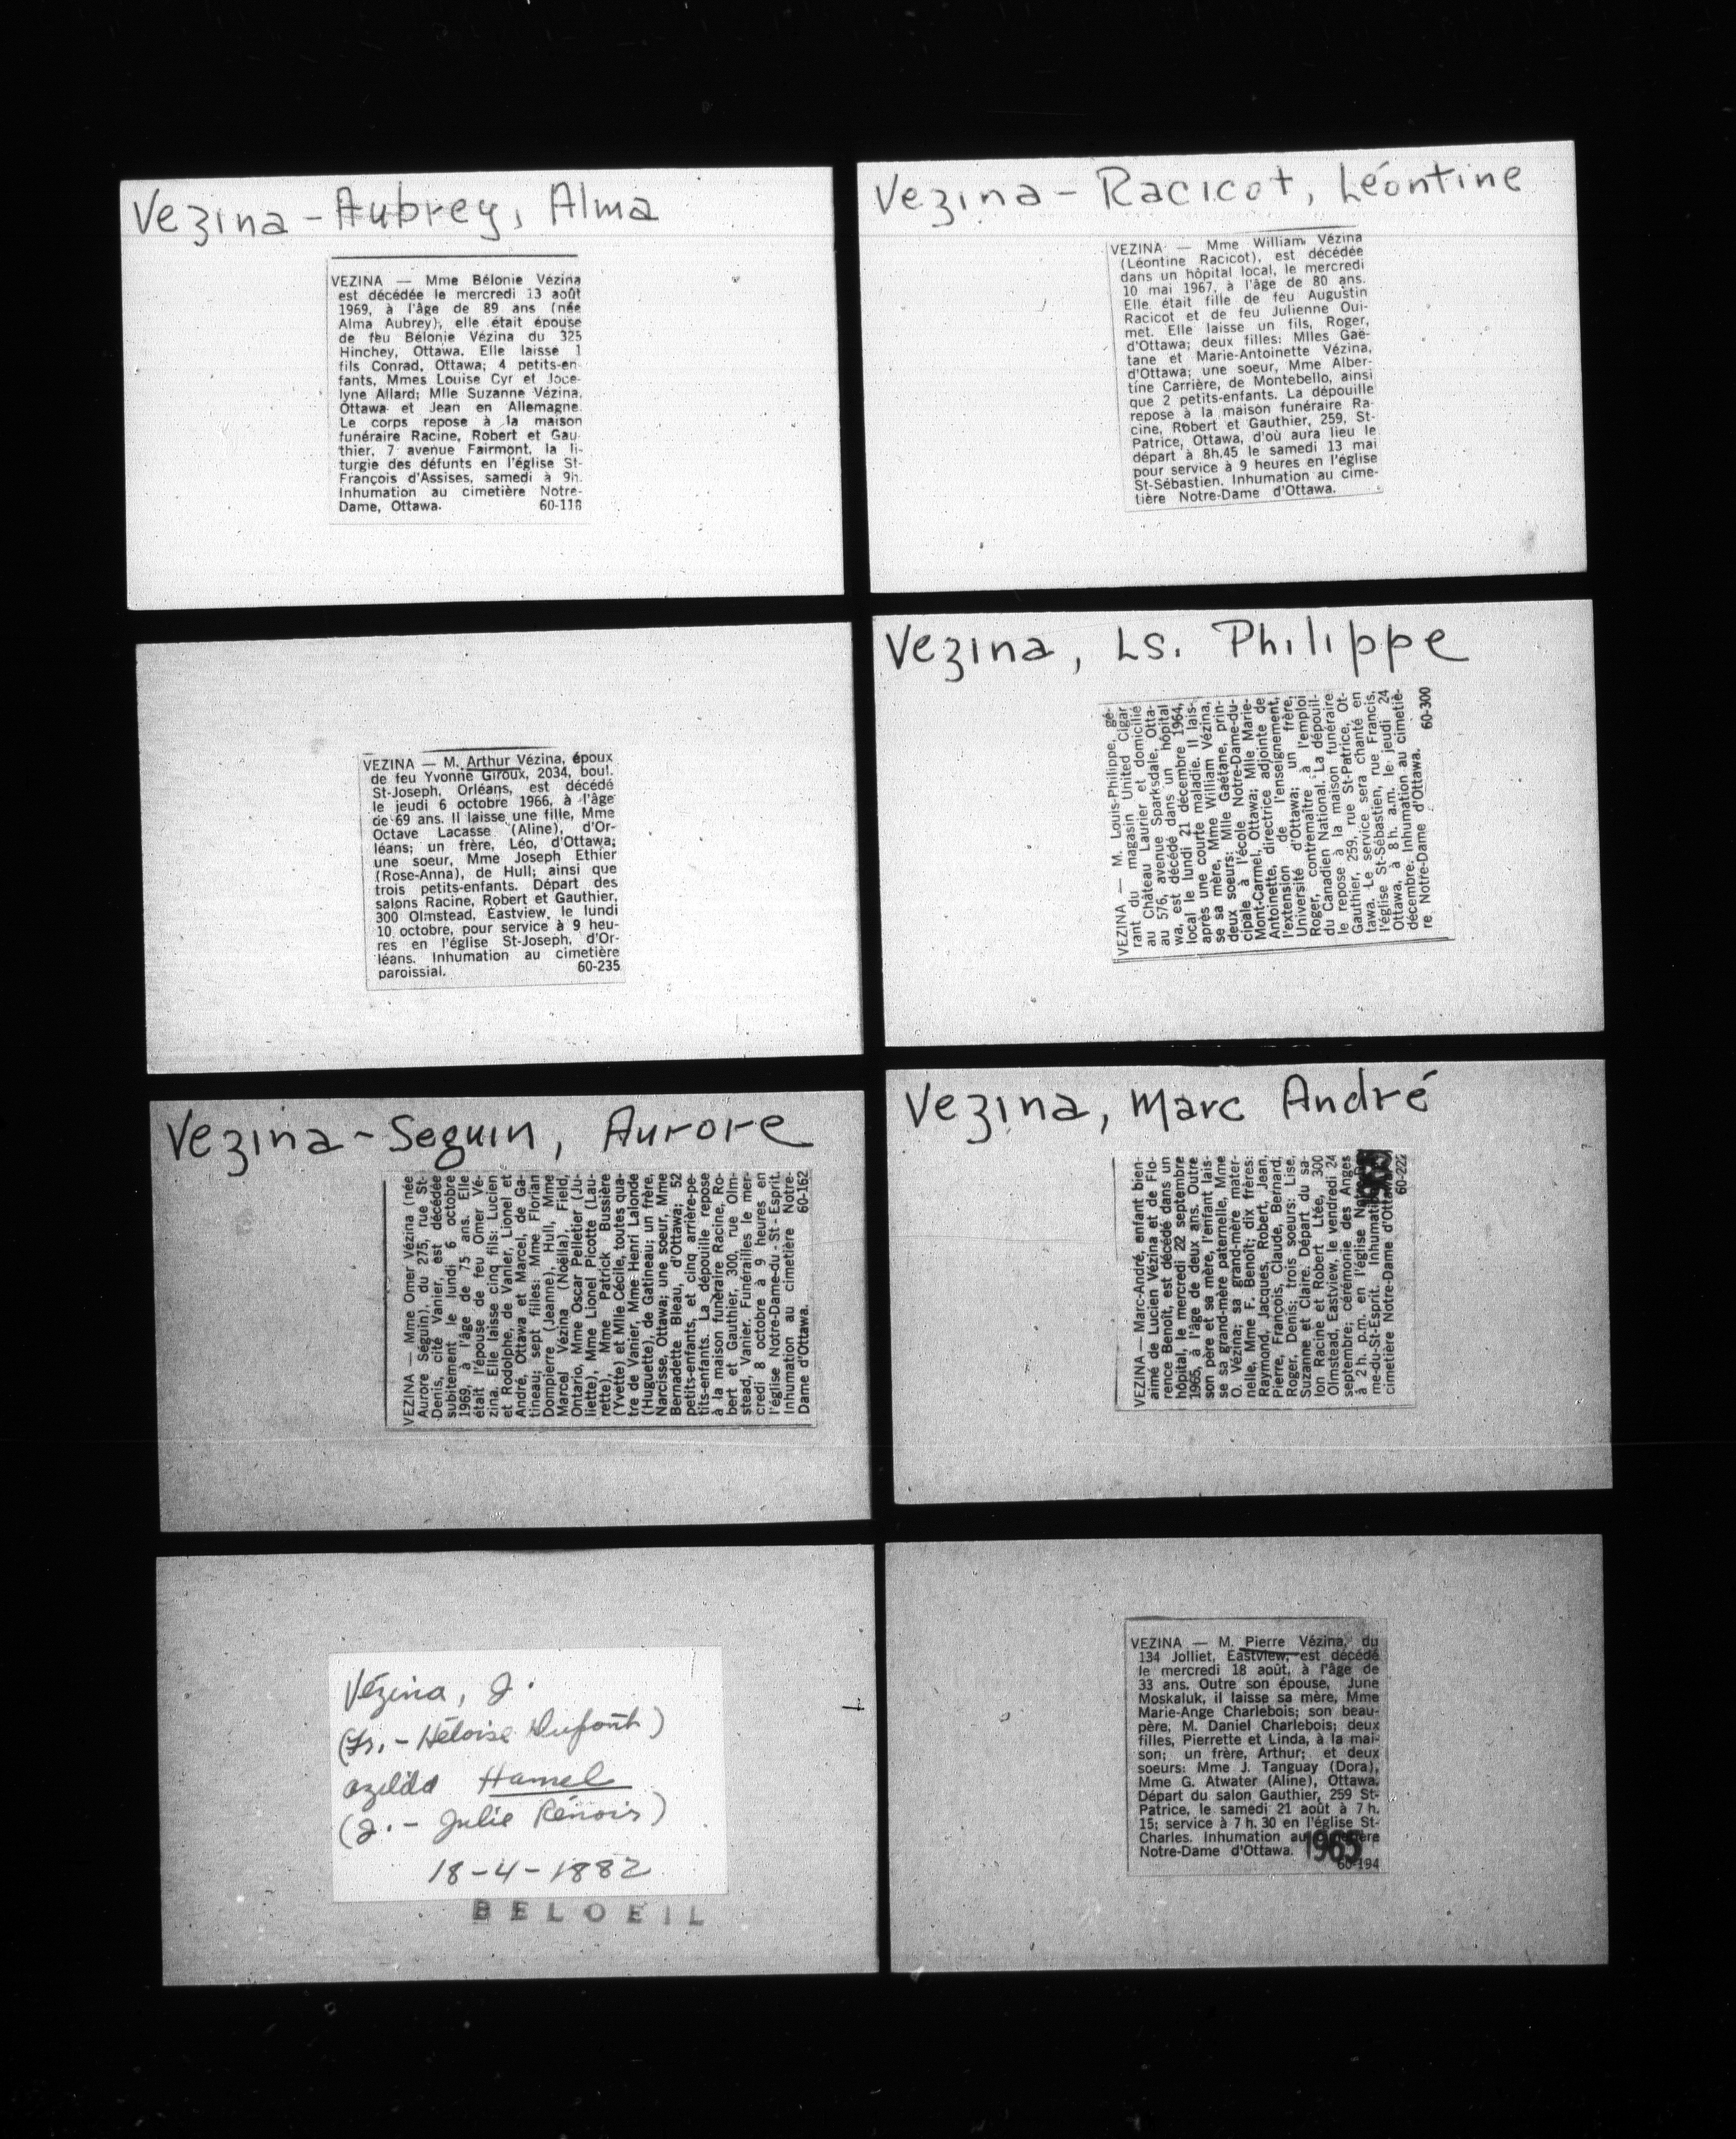 Vezina - Aubrey, Alma
VEZINA — Mme Bélonie Vézina
est décédée le mercredi 13 août
1969, à l'âge de 89 ans (née
Alma Aubrey), elle était épouse
de feu Bélonie Vézina du 325
Hinchey, Ottawa. Elle laisse 1
fils Conrad, Ottawa; 4 petits-en-
fants, Mmes Louise Cyr et Joce-
lyne Allard; Mlle Suzanne Vézina,
Ottawa et Jean en Allemagne.
Le corps repose à la maison
funéraire Racine, Robert et Gau-
thier, 7 avenue Fairmont, la li-
turgie des défunts en l'église St-
François d'Assises, samedi à 9h.
Inhumation au cimetière Notre-
Dame, Ottawa. 60-118
Vezina - Racicot, Léontine
VEZINA — Mme William Vézina
(Léontine Racicot), est décédée
dans un hôpital local, le mercredi
10 mai 1967, à l'âge de 80 ans.
Elle était fille de feu Augustin
Racicot et de feu Julienne Oui-
met. Elle laisse un fils, Roger,
d'Ottawa; deux filles: Mlles Gaë-
tane et Marie-Antoinette Vézina,
d'Ottawa; une soeur, Mme Alber-
tine Carrière, de Montebello, ainsi
que 2 petits-enfants. La dépouille
repose à la maison funéraire Ra-
cine, Robert et Gauthier, 259, St-
Patrice, Ottawa, d'où aura lieu le
départ à 8h.45 le samedi 13 mai
pour service à 9 heures en l'église
St-Sébastien. Inhumation au cime-
tière Notre-Dame d'Ottawa.
VEZINA — M. Arthur Vézina, époux
de feu Yvonne Giroux, 2034, boul.
St-Joseph, Orléans, est décédé
le jeudi 6 octobre 1966, à l'âge
de 69 ans. Il laisse une fille, Mme
Octave Lacasse (Aline), d'Or-
léans; un frère, Léo, d'Ottawa;
une soeur, Mme Joseph Ethier
(Rose-Anna), de Hull; ainsi que
trois petits-enfants. Départ des
salons Racine, Robert et Gauthier,
300 Olmstead, Eastview, le lundi
10 octobre, pour service à 9 heu-
res en l'église St-Joseph, d'Or-
léans. Inhumation au cimetière
paroissial. 60-235
Vezina, Ls. Philippe
VEZINA — M. Louis-Philippe, gé-
rant du magasin United Cigar
au Château Laurier et domicilié
au 576, avenue Sparksdale, Otta-
wa, est décédé dans un hôpital
local le lundi 21 décembre 1964,
après une courte maladie. Il lais-
se sa mère, Mme William Vézina,
deux soeurs: Mlle Gaétane, prin-
cipale à l'école Notre-Dame-du-
Mont-Carmel, Ottawa; Mlle Marie-
Antoinette, directrice adjointe de
l'extension de l'enseignement,
Université d'Ottawa; un frère,
Roger, contremaître à l'emploi
du Canadien National. La dépouil-
le repose à la maison funéraire
Gauthier, 259, rue St-Patrice, Ot-
tawa. Le service sera chanté en
l'église St-Sébastien, rue Francis,
Ottawa, à 8 h. a.m. le jeudi 24
décembre. Inhumation au cimetiè-
re Notre-Dame d'Ottawa. 60-300
Vezina - Seguin, Aurore
VEZINA — Mme Omer Vézina (née
Aurore Séguin), du 275, rue St-
Denis, cité Vanier, est décédée
subitement le lundi 6 octobre
1969, à l'âge de 75 ans. Elle
était l'épouse de feu Omer Vé-
zina. Elle laisse cinq fils: Lucien
et Rodolphe, de Vanier, Lionel et
André, Ottawa et Marcel, de Ga-
tineau; sept filles: Mme Florian
Dompierre (Jeanne), Hull, Mme
Marcel Vézina (Noëlla), Field,
Ontario, Mme Oscar Pelletier (Ju-
liette), Mme Lionel Picotte (Lau-
rette), Mme Patrick Bussière
(Yvette) et Mlle Cécile, toutes qua-
tre de Vanier, Mme Henri Lalonde
(Huguette), de Gatineau; un frère,
Narcisse, Ottawa; une soeur, Mme
Bernadette Bleau, d'Ottawa; 52
petits-enfants, et cinq arrière-pe-
tits-enfants. La dépouille repose
à la maison funéraire Racine, Ro-
bert et Gauthier, 300, rue Olm-
stead, Vanier. Funérailles le mer-
credi 8 octobre à 9 heures en
l'église Notre-Dame-du-St-Esprit.
Inhumation au cimetière Notre-
Dame d'Ottawa. 60-162
Vezina, Marc André
VEZINA — Marc-André, enfant bien-
aimé de Lucien Vézina et de Flo-
rence Benoît, est décédé dans un
hôpital, le mercredi 22 septembre
1965, à l'âge de deux ans. Outre
son père et sa mère, l'enfant lais-
se sa grand-mère paternelle, Mme
O. Vézina; sa grand-mère mater-
nelle, Mme F. Benoît; dix frères:
Raymond, Jacques, Robert, Jean,
Pierre, François, Claude, Bernard,
Roger, Denis; trois soeurs: Lise,
Suzanne et Claire. Départ du sa-
lon Racine et Robert Ltée, 300
Olmstead, Eastview, le vendredi 24
septembre; cérémonie des Anges
à 2 h. p.m. en l'église
me-du-St-Esprit.
cimetière Notre-Dame d'Ottawa.
60-222
Vézina, J.
(Fr. - Héloise Dupont)
Ozélda Hamel
(J. - Julie Rénois)
18-4-1882
BELOEIL
VEZINA — M. Pierre Vézina, du
134 Jolliet, Eastview, est décédé
le mercredi 18 août, à l'âge de
33 ans. Outre son épouse, June
Moskaluk, il laisse sa mère, Mme
Marie-Ange Charlebois; son beau-
père, M. Daniel Charlebois; deux
filles, Pierrette et Linda, à la mai-
son; un frère, Arthur; et deux
soeurs: Mme J. Tanguay (Dora),
Mme G. Atwater (Aline), Ottawa.
Départ du salon Gauthier, 259 St-
Patrice, le samedi 21 août à 7 h.
15; service à 7 h. 30 en l'église St-
Charles. Inhumation au
Notre-Dame d'Ottawa. 1965
60-194